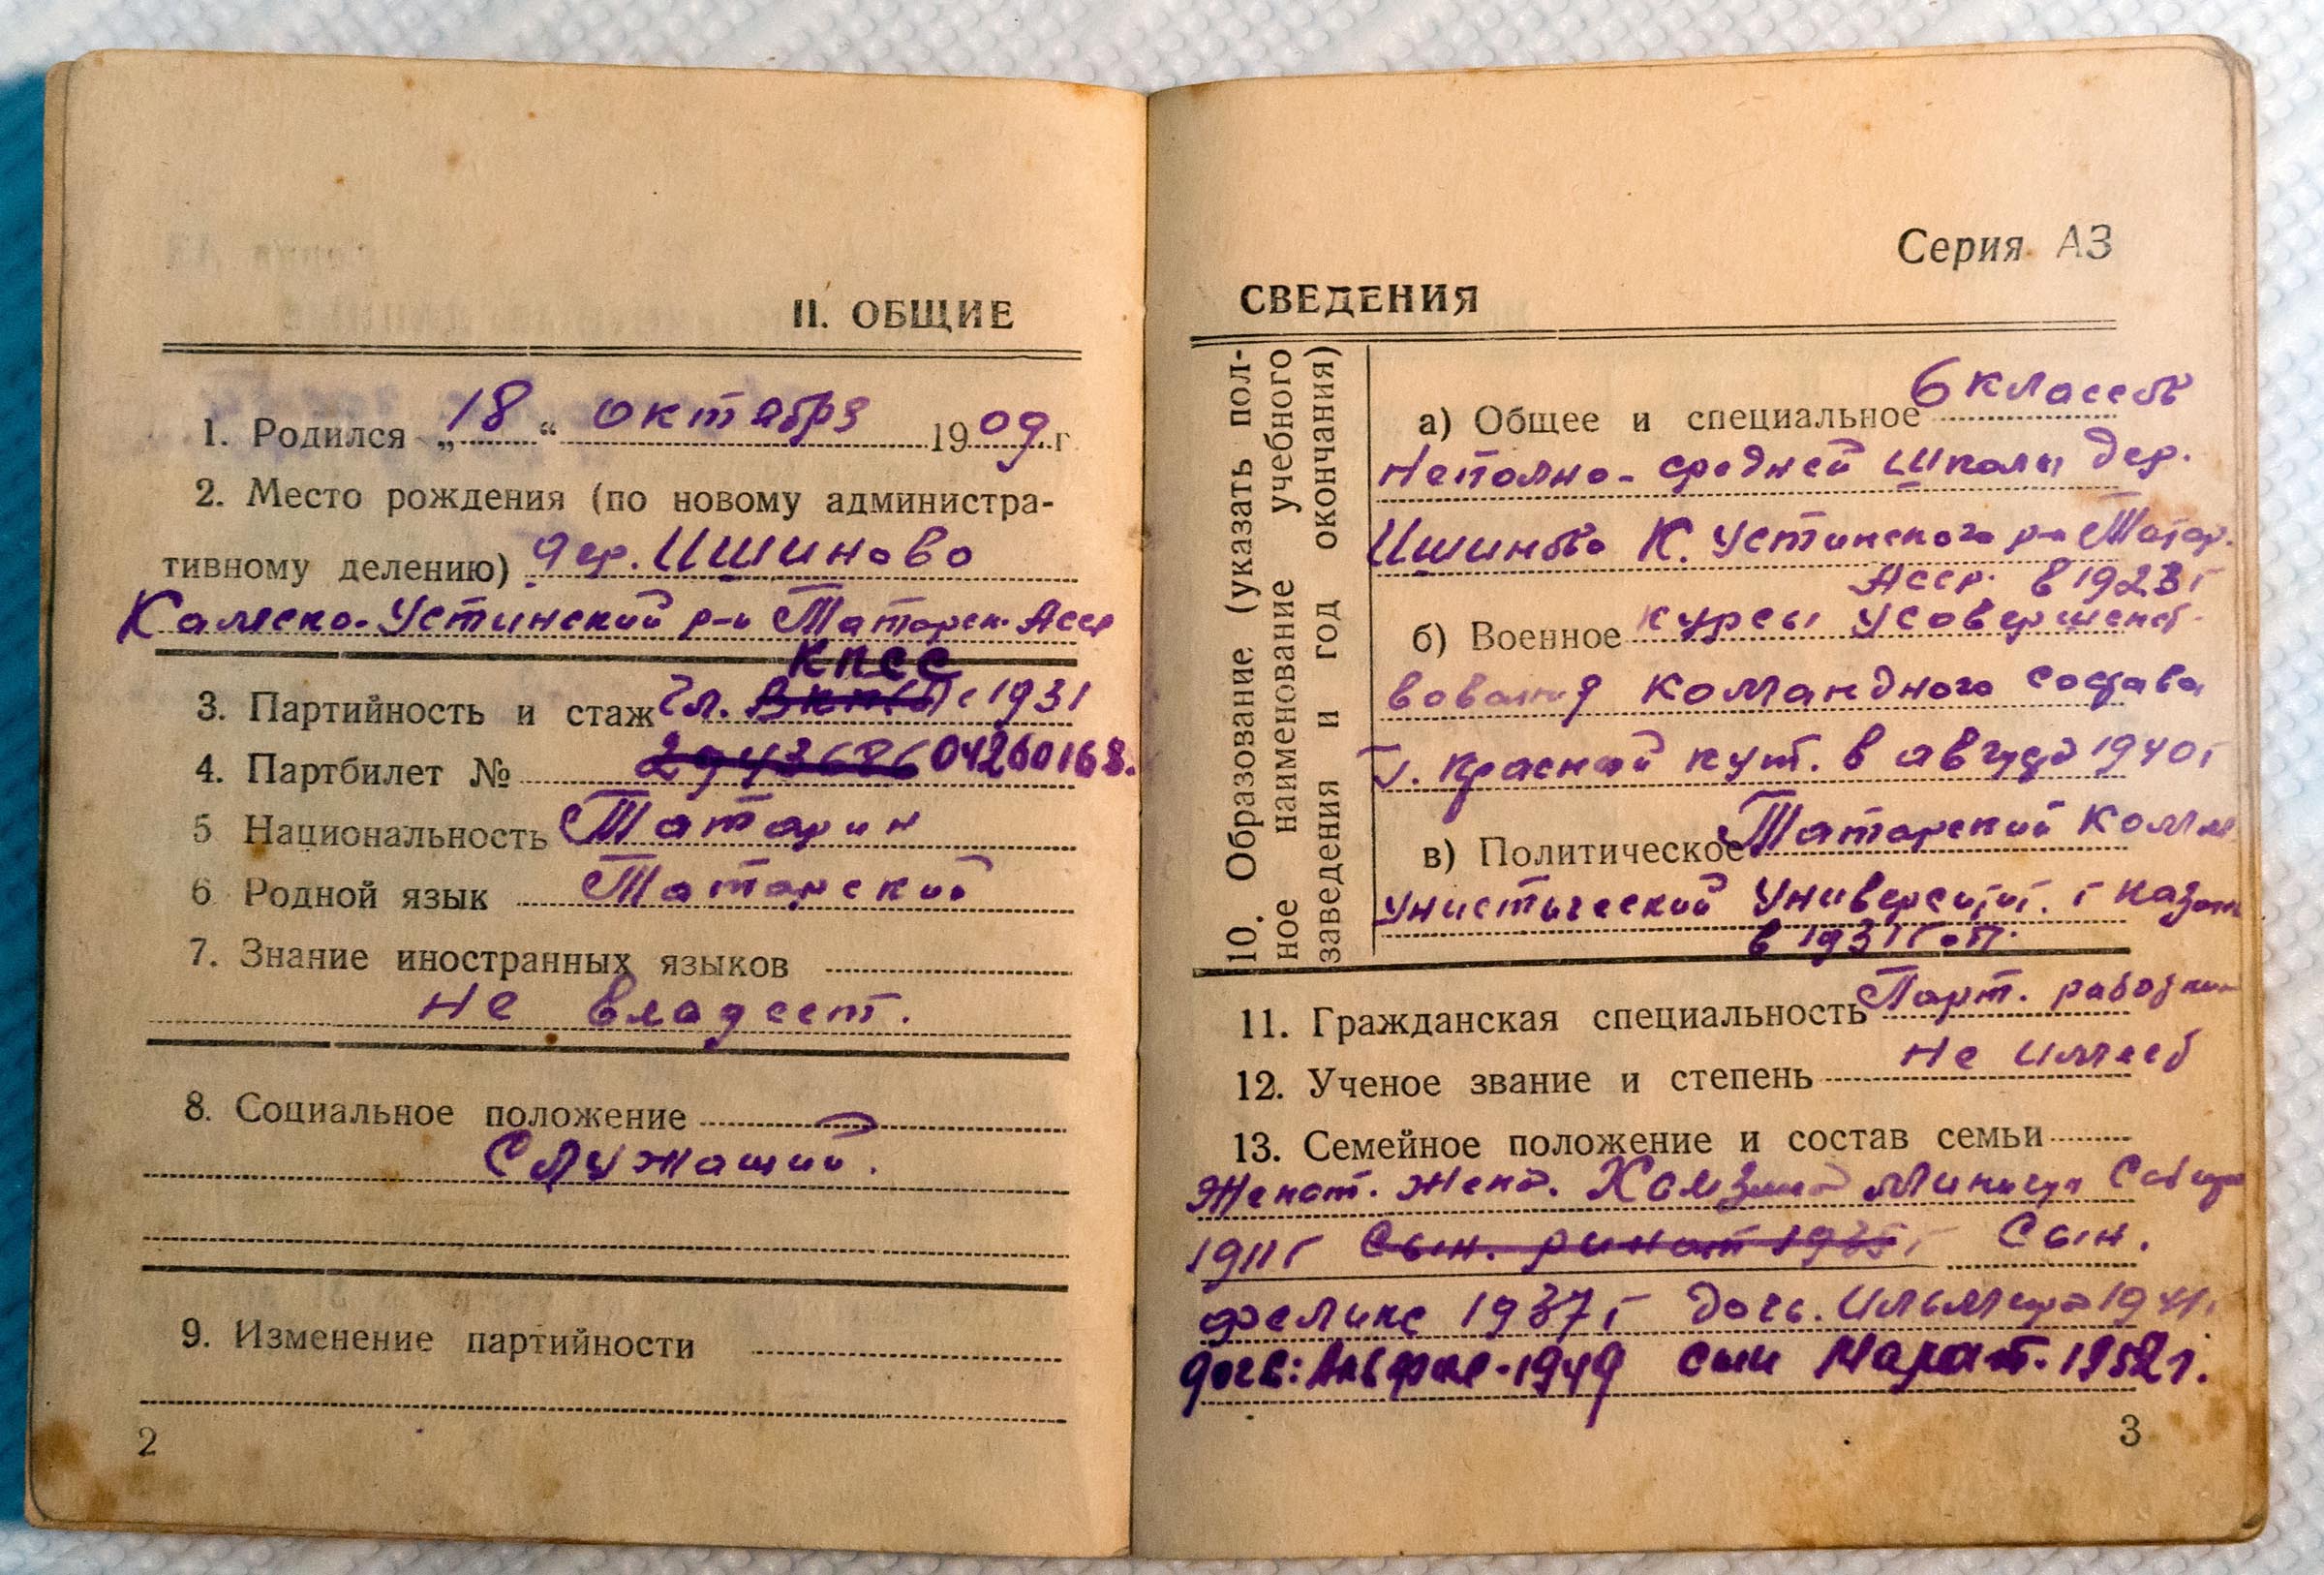 II. ОБЩИЕ
1. Родился „18“ октября 1909 г
2. Место рождения (по новому администра-
тивному делению) дер. Ишиново
Камско-Устинский р-н Татарск. Асср
КПСС
3. Партийность и стаж Чл. ВКП(б) с 1931
4. Партбилет № 2943686 04260168.
5 Национальность Татарин
6 Родной язык Татарский
7. Знание иностранных языков
не владеет.
8. Социальное положение
Служащий.
9. Изменение партийности
2
Серия АЗ
СВЕДЕНИЯ
10. Образование (указать пол-
ное наименование учебного
заведения и год окончания)
а) Общее и специальное 6 классов
Неполно-средней школы дер.
Ишиново К. Устинского р-н Татар.
Асср. в 1923 г
б) Военное курсы усовершенст-
вования командного состава
г. Красный кут. в август 1940 г
в) Политическое Татарский Комм
унистический Университет. г Казань
в 1931 г
11. Гражданская специальность Парт. работник
12. Ученое звание и степень не имеет
13. Семейное положение и состав семьи
Женат. жена. Минисур
1911 г Сын. ринат 1935 г Сын.
феликс 1937 г дочь. Ильмира 1941 г
дочь: 1949 сын Марат. 1952 г.
3